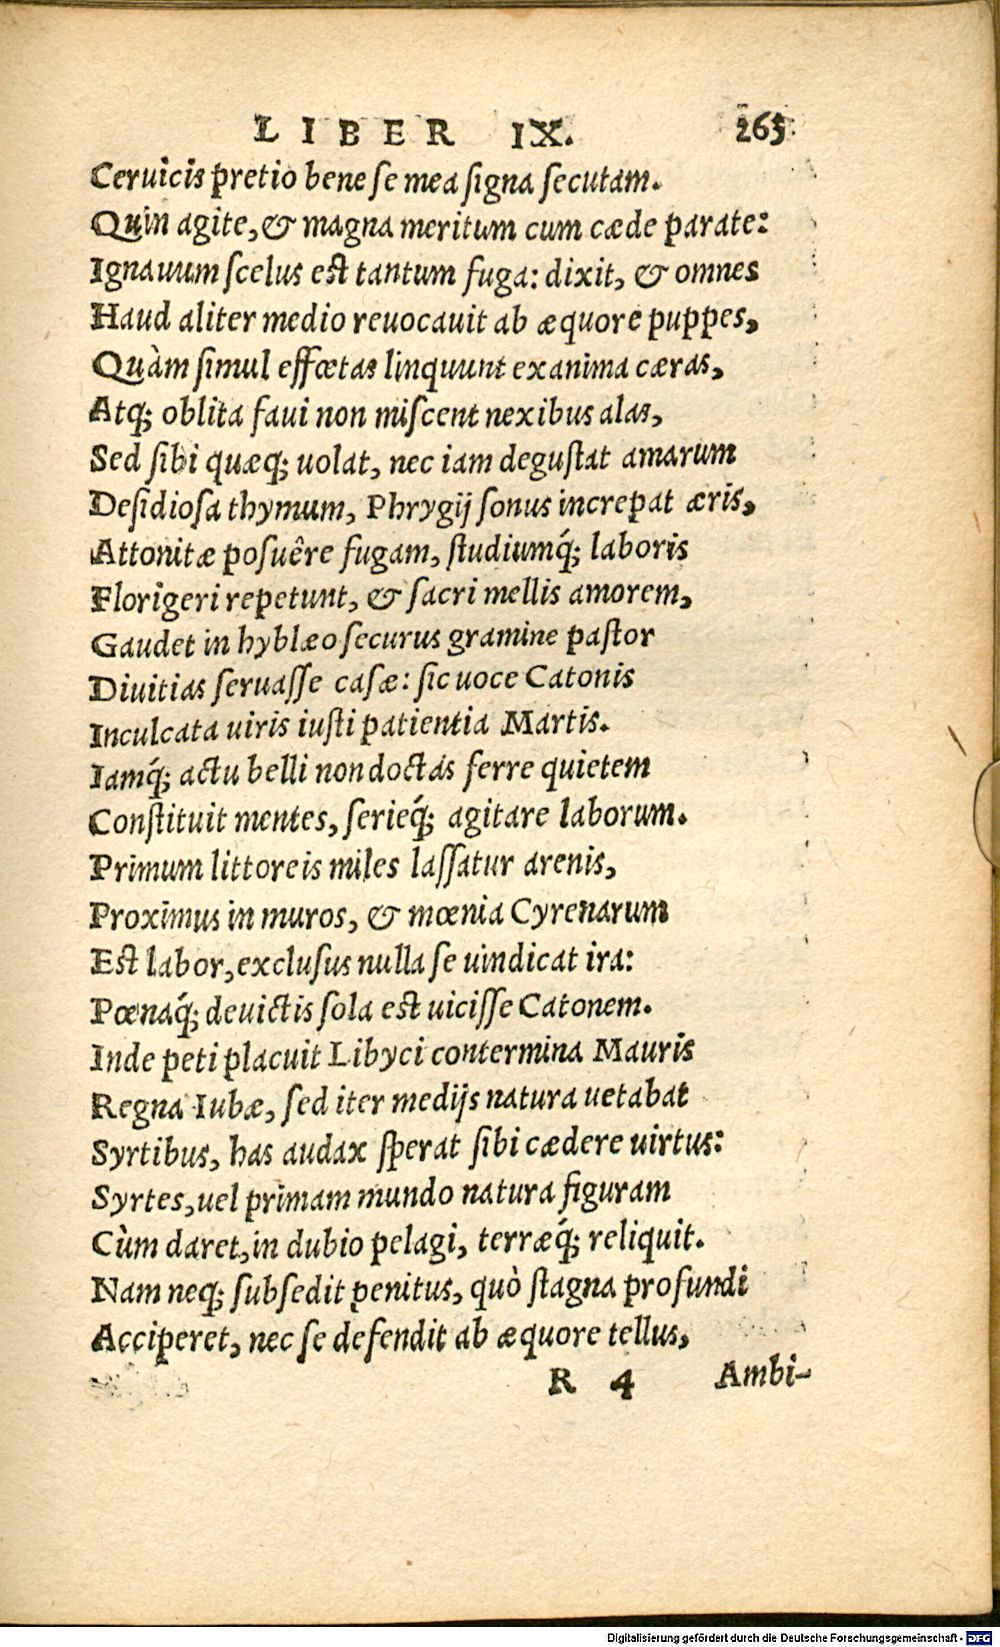 LIBER IX. 265
Ceruicis pretio bene se mea signa secutam.
Quin agite, & magna meritum cum cæde parate:
Ignauum scelus est tantum fuga: dixit, & omnes
Haud aliter medio reuocauit ab æquore puppes,
Quàm simul effœtas linquunt exanima cæras,
Atq; oblita faui non miscent nexibus alas,
Sed sibi quæq; uolat, nec iam degustat amarum
Desidiosa thymum, Phrygij sonus increpat æris,
Attonitæ posuêre fugam, studiumq́; laboris
Florigeri repetunt, & sacri mellis amorem,
Gaudet in hyblæo securus gramine pastor
Diuitias seruasse casæ: sic uoce Catonis
Inculcata uiris iusti patientia Martis.
Iamq́; actu belli non doctas ferre quietem
Constituit mentes, serieq́; agitare laborum.
Primum littoreis miles lassatur arenis,
Proximus in muros, & mœnia Cyrenarum
Est labor, exclusus nulla se uindicat ira:
Pœnaq́; deuictis sola est uicisse Catonem.
Inde peti placuit Libyci contermina Mauris
Regna Iubæ, sed iter medijs natura uetabat
Syrtibus, has audax sperat sibi cædere uirtus:
Syrtes, uel primam mundo natura figuram
Cùm daret, in dubio pelagi, terræq́; reliquit.
Nam neq; subsedit penitus, quò stagna profundi
Acciperet, nec se defendit ab æquore tellus,
R 4 Ambi-
Digitalisierung gefördert durch die Deutsche Forschungsgemeinschaft - DFG